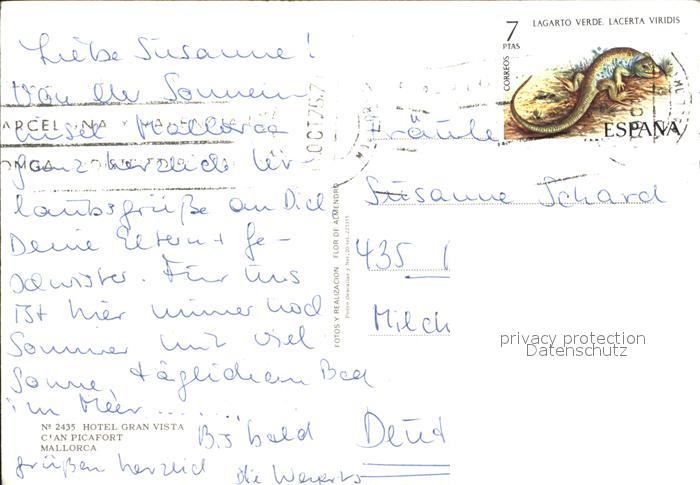 Liebe Susanne!
Von der Sonnen-
insel Mallorca
ganz herzliche Ur-
laubsgrüße an Dich
Deine Eltern + Ge-
schwister. Für uns
ist hier immer noch
Sommer mit viel
Sonne, täglichem Bad
im Meer......
Bis bald
grüßen herzlich die
Nº 2435 HOTEL GRAN VISTA
C'AN PICAFORT
MALLORCA
FOTOS Y REALIZACION FLOR DE ALMENDRO
7
PTAS
CORREOS
LAGARTO VERDE. LACERTA VIRIDIS
ESPAÑA
OCT.75
Fräule
Susanne Schard
435
Milch
Deut
privacy protection
Datenschutz